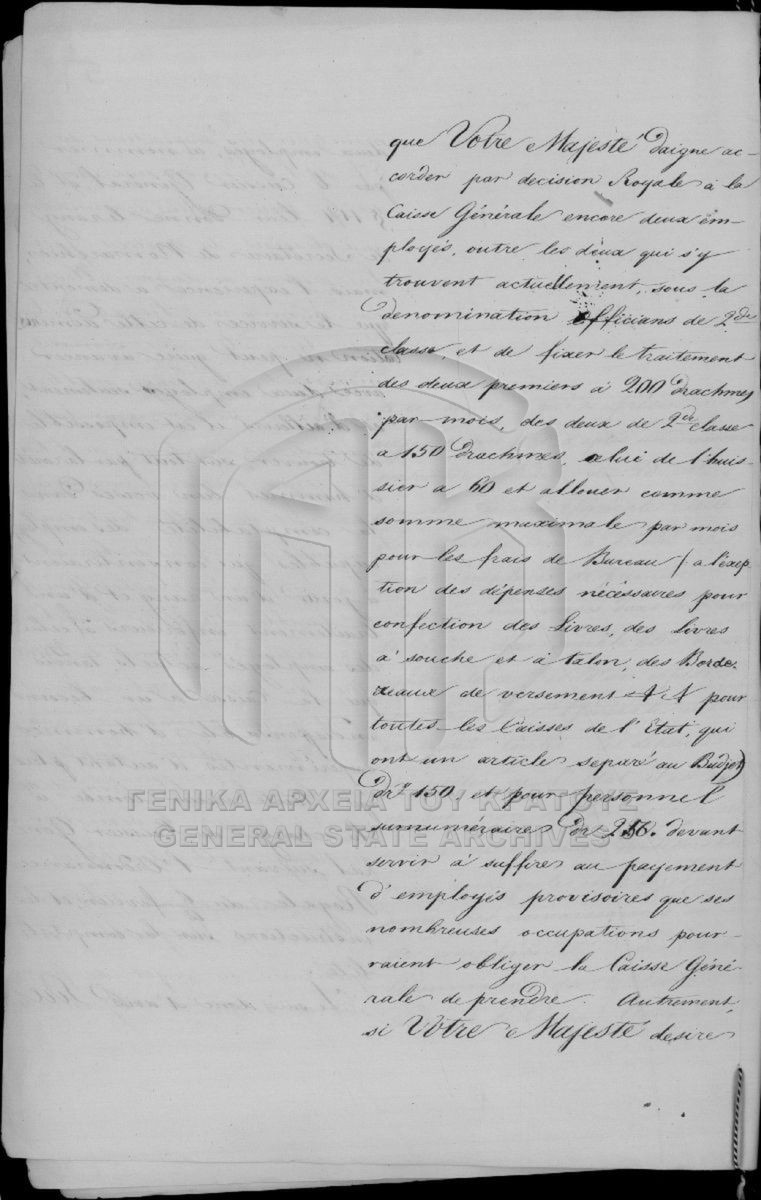 que Votre Majesté daigne ac-
corder par decision Royale à la
Caisse Générale encore deux em-
ployés, outre les deux qui s'y
trouvent actuellement, sous la
denomination officians de 2de
classe, et de fixer le traitement
des deux premiers à 200 drachmes
par mois, des deux de 2de classe
a 150 drachmes, celui de l'huis-
sier a 60 et allouer comme
somme maximale par mois
pour les frais de Bureau (a l'exep
tion des dépenses nécéssaires pour
confection des Livres, des Livres
à souche et à talon, des Borde-
reaux de versement pour
toutes les Caisses de l'Etat, qui
ont un article separé au Budjet)
Drs 150 et pour personnel
surnuméraire Dr. devant
servir à suffire au payement
d'employés provisoires que ses
nombreuses occupations pour-
raient obliger la Caisse Géné-
rale de prendre. Autrement,
si Votre Majesté desire
ΓΕΝΙΚΑ ΑΡΧΕΙΑ ΤΟΥ ΚΡΑΤΟΥΣ
GENERAL STATE ARCHIVES